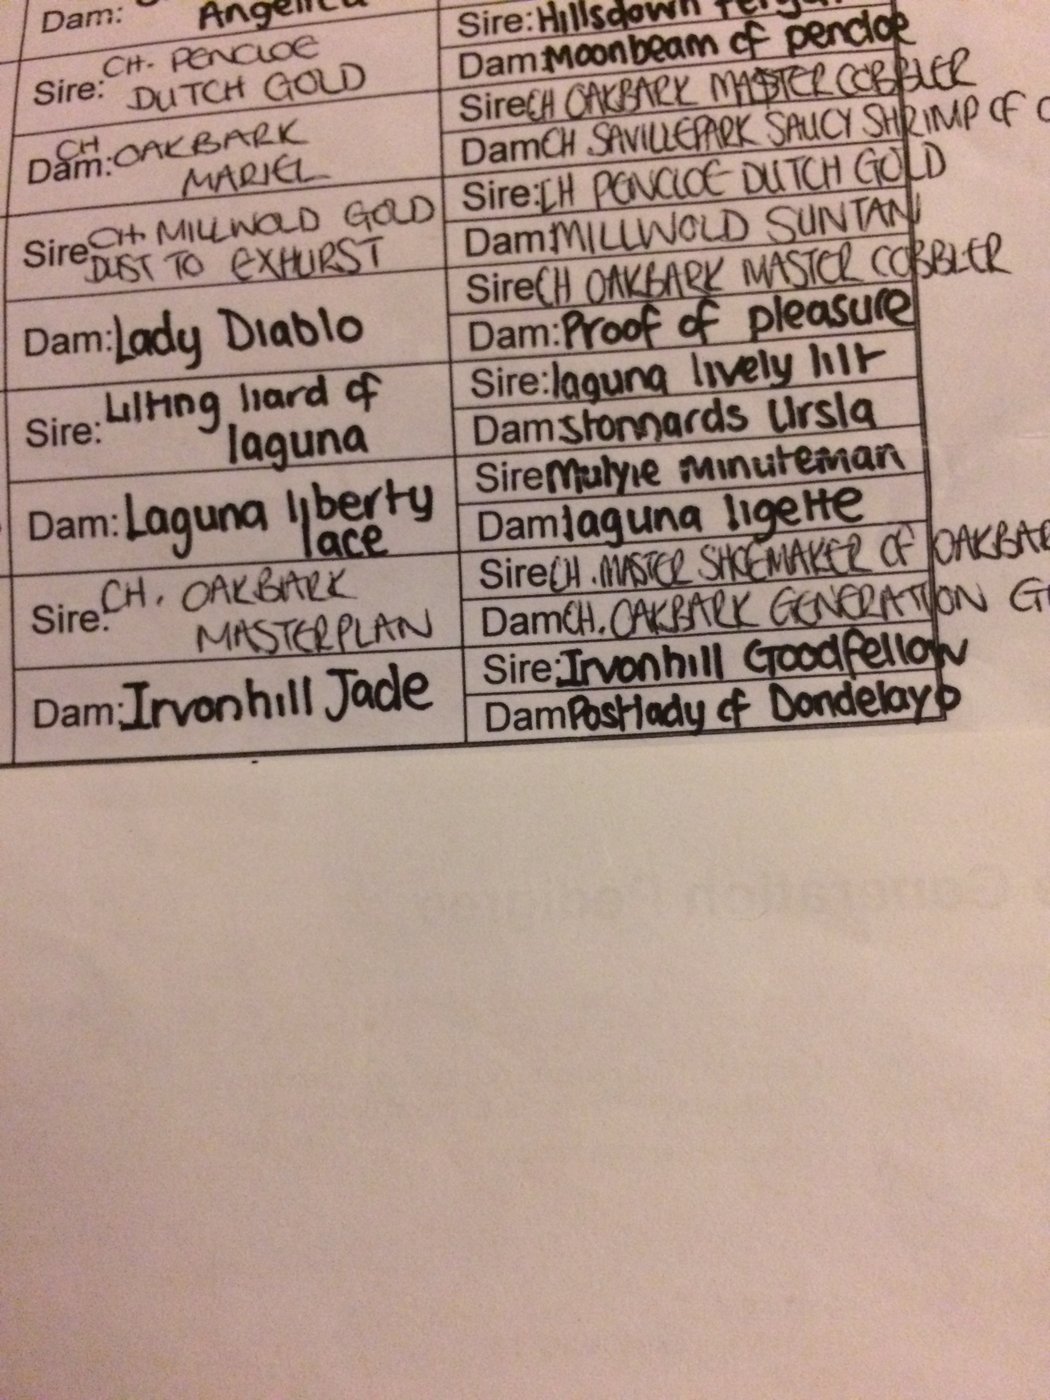 Dam:
Angelica
Sire: CH. PENCLOE
DUTCH GOLD
Dam: CH OAKBARK
MARIEL
Sire CH MILLWOLD GOLD
DUST TO EXHURST
Dam: Lady Diablo
Sire: Lilting liard of
laguna
Dam: Laguna liberty
lace
Sire: CH. OAKBARK
MASTERPLAN
Dam: Irvonhill Jade
Sire: Hillsdown
Dam: Moonbeam of pencloe
Sire CH OAKBARK MASTER COBBLER
Dam CH SAVILLEPARK SAUCY SHRIMP OF
Sire: CH PENCLOE DUTCH GOLD
Dam: MILLWOLD SUNTAN
Sire CH OAKBARK MASTER COBBLER
Dam: Proof of pleasure
Sire: laguna lively lilt
Dam: Stonnards Ursla
Sire Mulyie Minuteman
Dam laguna ligette
Sire CH. MASTER SHOEMAKER OF OAKBAR
Dam CH. OAKBARK GENERATION
Sire: Irvonhill Goodfellow
Dam Postlady of Dondelayo
Generation Pedigree